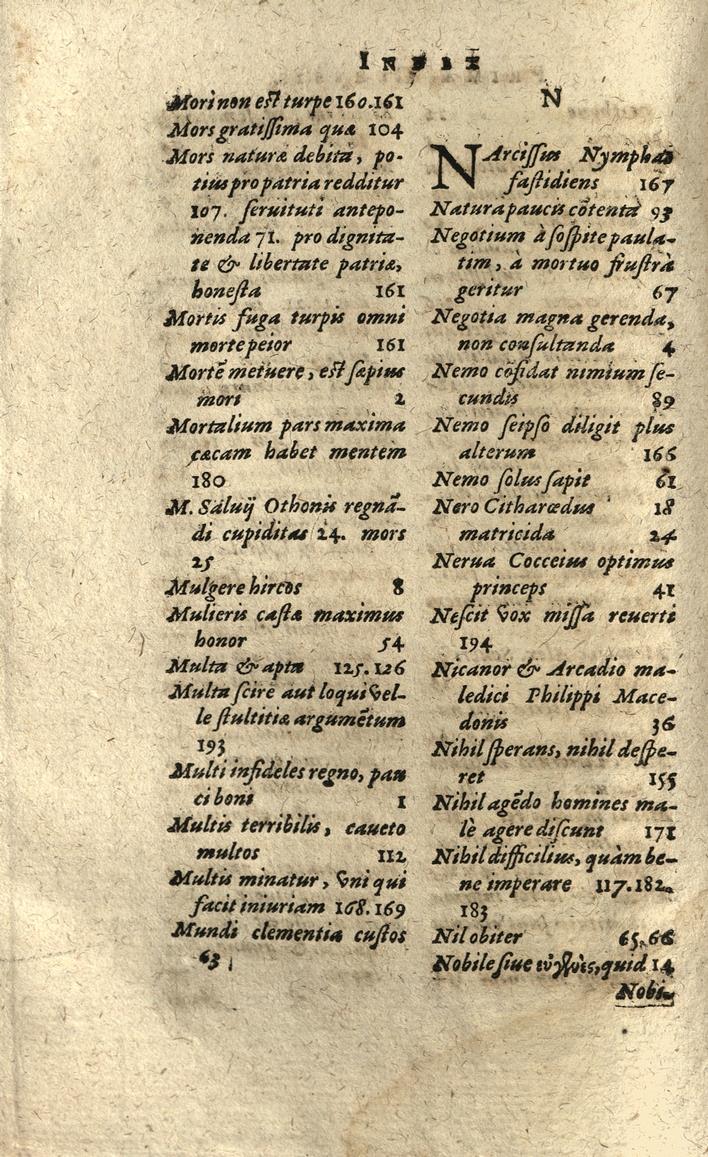 INDEX
Mori non est turpe 160.161
Mors gratissima quæ 104
Mors naturæ debita, po-
tius pro patria redditur
107. seruituti antepo-
nenda 71. pro dignita-
te & libertate patriæ,
honesta 161
Mortis fuga turpis omni
morte peior 161
Mortē metuere, est sæpius
mori 2
Mortalium pars maxima
cæcam habet mentem
180
M. Saluij Othonis regnā-
di cupiditas 24. mors
25
Mulgere hircos 8
Mulieris castæ maximus
honor 54
Multa & apta 125.126
Multa scire aut loqui vel-
le stultitiæ argumētum
193
Multi infideles regno, pau
ci boni 1
Multis terribilis, caueto
multos 112
Multis minatur, vni qui
facit iniuriam 168.169
Mundi clementia custos
63
N
NArcissus Nymphas
fastidiens 167
Natura paucis cōtenta 93
Negotium à sospite paula-
tim, à mortuo frustrà
geritur 67
Negotia magna gerenda,
non consultanda 4
Nemo cōfidat nimium se-
cundis 89
Nemo seipso diligit plus
alterum 166
Nemo solus sapit 61
Nero Citharœdus 18
matricida 24
Nerua Cocceius optimus
princeps 41
Nescit vox missa reuerti
194
Nicanor & Arcadio ma-
ledici Philippi Mace-
donis 36
Nihil sperans, nihil despe-
ret 155
Nihil agēdo homines ma-
lè agere discunt 171
Nihil difficilius, quàm be-
ne imperare 117.182.
183
Nil obiter 65.66
Nobile siue quid 14
Nobi-